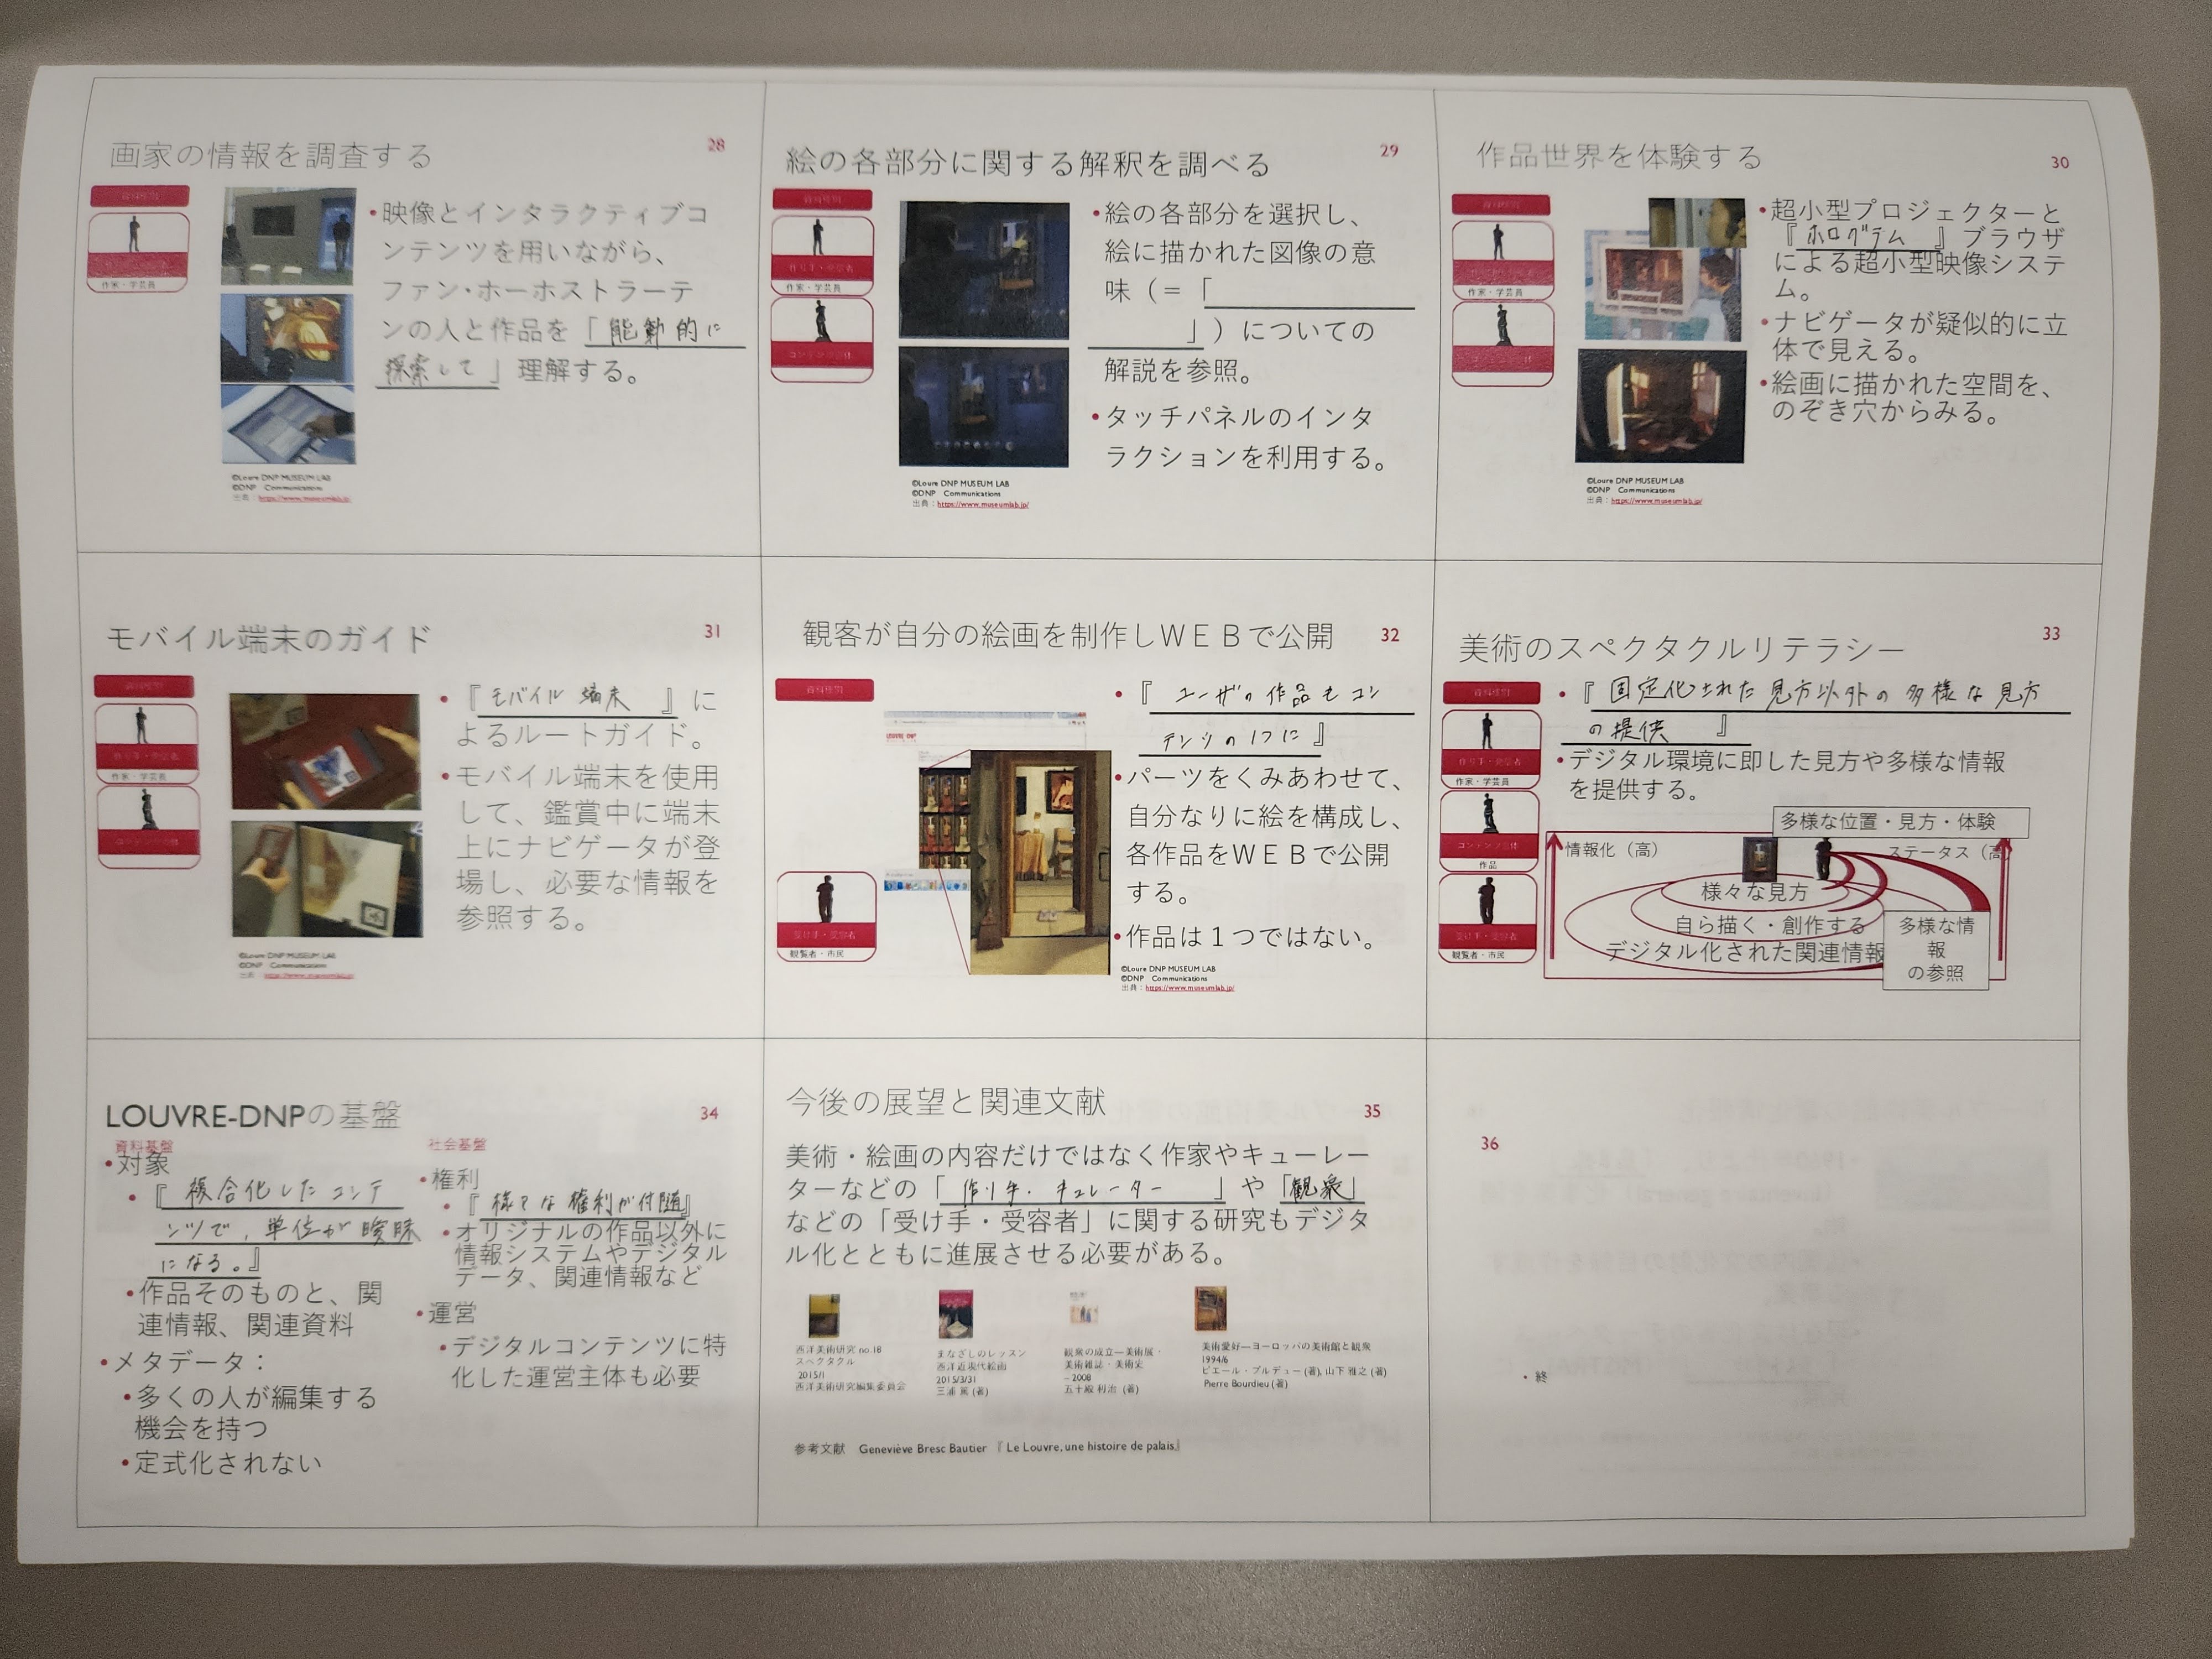 画家の情報を調査する
28
資料種別
作家・学芸員
・映像とインタラクティブコ
ンテンツを用いながら、
ファン・ホーホストラーテ
ンの人と作品を「能動的に
探索して」理解する。
©Loure DNP MUSEUM LAB
©DNP Communications
出典：https://www.museumlab.jp/
絵の各部分に関する解釈を調べる
29
資料種別
作り手・発信者
作家・学芸員
コンテンツ自体
・絵の各部分を選択し、
絵に描かれた図像の意
味（＝「
」）についての
解説を参照。
・タッチパネルのインタ
ラクションを利用する。
©Loure DNP MUSEUM LAB
©DNP Communications
出典：https://www.museumlab.jp/
作品世界を体験する
30
資料種別
作家・学芸員
・超小型プロジェクターと
『ホログラム』ブラウザ
による超小型映像システ
ム。
・ナビゲータが疑似的に立
体で見える。
・絵画に描かれた空間を、
のぞき穴からみる。
©Loure DNP MUSEUM LAB
©DNP Communications
出典：https://www.museumlab.jp/
モバイル端末のガイド
31
資料種別
作り手・発信者
作家・学芸員
・『モバイル 端末』に
よるルートガイド。
・モバイル端末を使用
して、鑑賞中に端末
上にナビゲータが登
場し、必要な情報を
参照する。
©Loure DNP MUSEUM LAB
©DNP Communications
出典：https://www.museumlab.jp/
観客が自分の絵画を制作しＷＥＢで公開
32
資料種別
受け手・受容者
観覧者・市民
・『ユーザの作品もコン
テンツの1つに』
・パーツをくみあわせて、
自分なりに絵を構成し、
各作品をＷＥＢで公開
する。
・作品は１つではない。
©Loure DNP MUSEUM LAB
©DNP Communications
出典：https://www.museumlab.jp/
美術のスペクタクルリテラシー
33
資料種別
作り手・発信者
作家・学芸員
コンテンツ自体
作品
受け手・受容者
観覧者・市民
・『固定化された見方以外の多様な見方
の提供』
・デジタル環境に即した見方や多様な情報
を提供する。
多様な位置・見方・体験
情報化（高）
ステータス（高）
様々な見方
自ら描く・創作する
デジタル化された関連情報
多様な情
報
の参照
LOUVRE-DNPの基盤
34
資料基盤
・対象
・『複合化したコンテ
ンツで，単位が曖昧
になる。』
・作品そのものと、関
連情報、関連資料
・メタデータ：
・多くの人が編集する
機会を持つ
・定式化されない
社会基盤
・権利
・『様々な権利が付随』
・オリジナルの作品以外に
情報システムやデジタル
データ、関連情報など
・運営
・デジタルコンテンツに特
化した運営主体も必要
今後の展望と関連文献
35
美術・絵画の内容だけではなく作家やキューレー
ターなどの「作り手．キュレーター」や「観衆」
などの「受け手・受容者」に関する研究もデジタ
ル化とともに進展させる必要がある。
西洋美術研究 no.18
スペクタクル
2015/1
西洋美術研究編集委員会
まなざしのレッスン
西洋近現代絵画
2015/3/31
三浦 篤 (著)
観衆の成立―美術展・
美術雑誌・美術史
– 2008
五十殿 利治 (著)
美術愛好―ヨーロッパの美術館と観衆
1994/6
ピエール・ブルデュー (著), 山下 雅之 (著)
Pierre Bourdieu (著)
参考文献 Geneviève Bresc Bautier 『Le Louvre, une histoire de palais』
36
・終